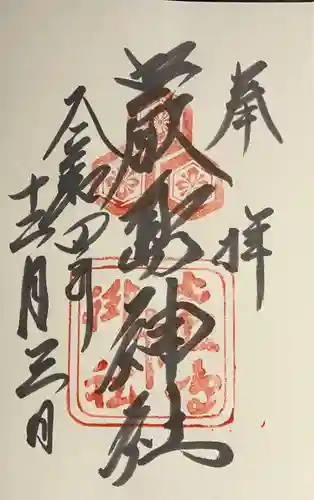 奉拝
厳島神社
令和四年
十二月三日